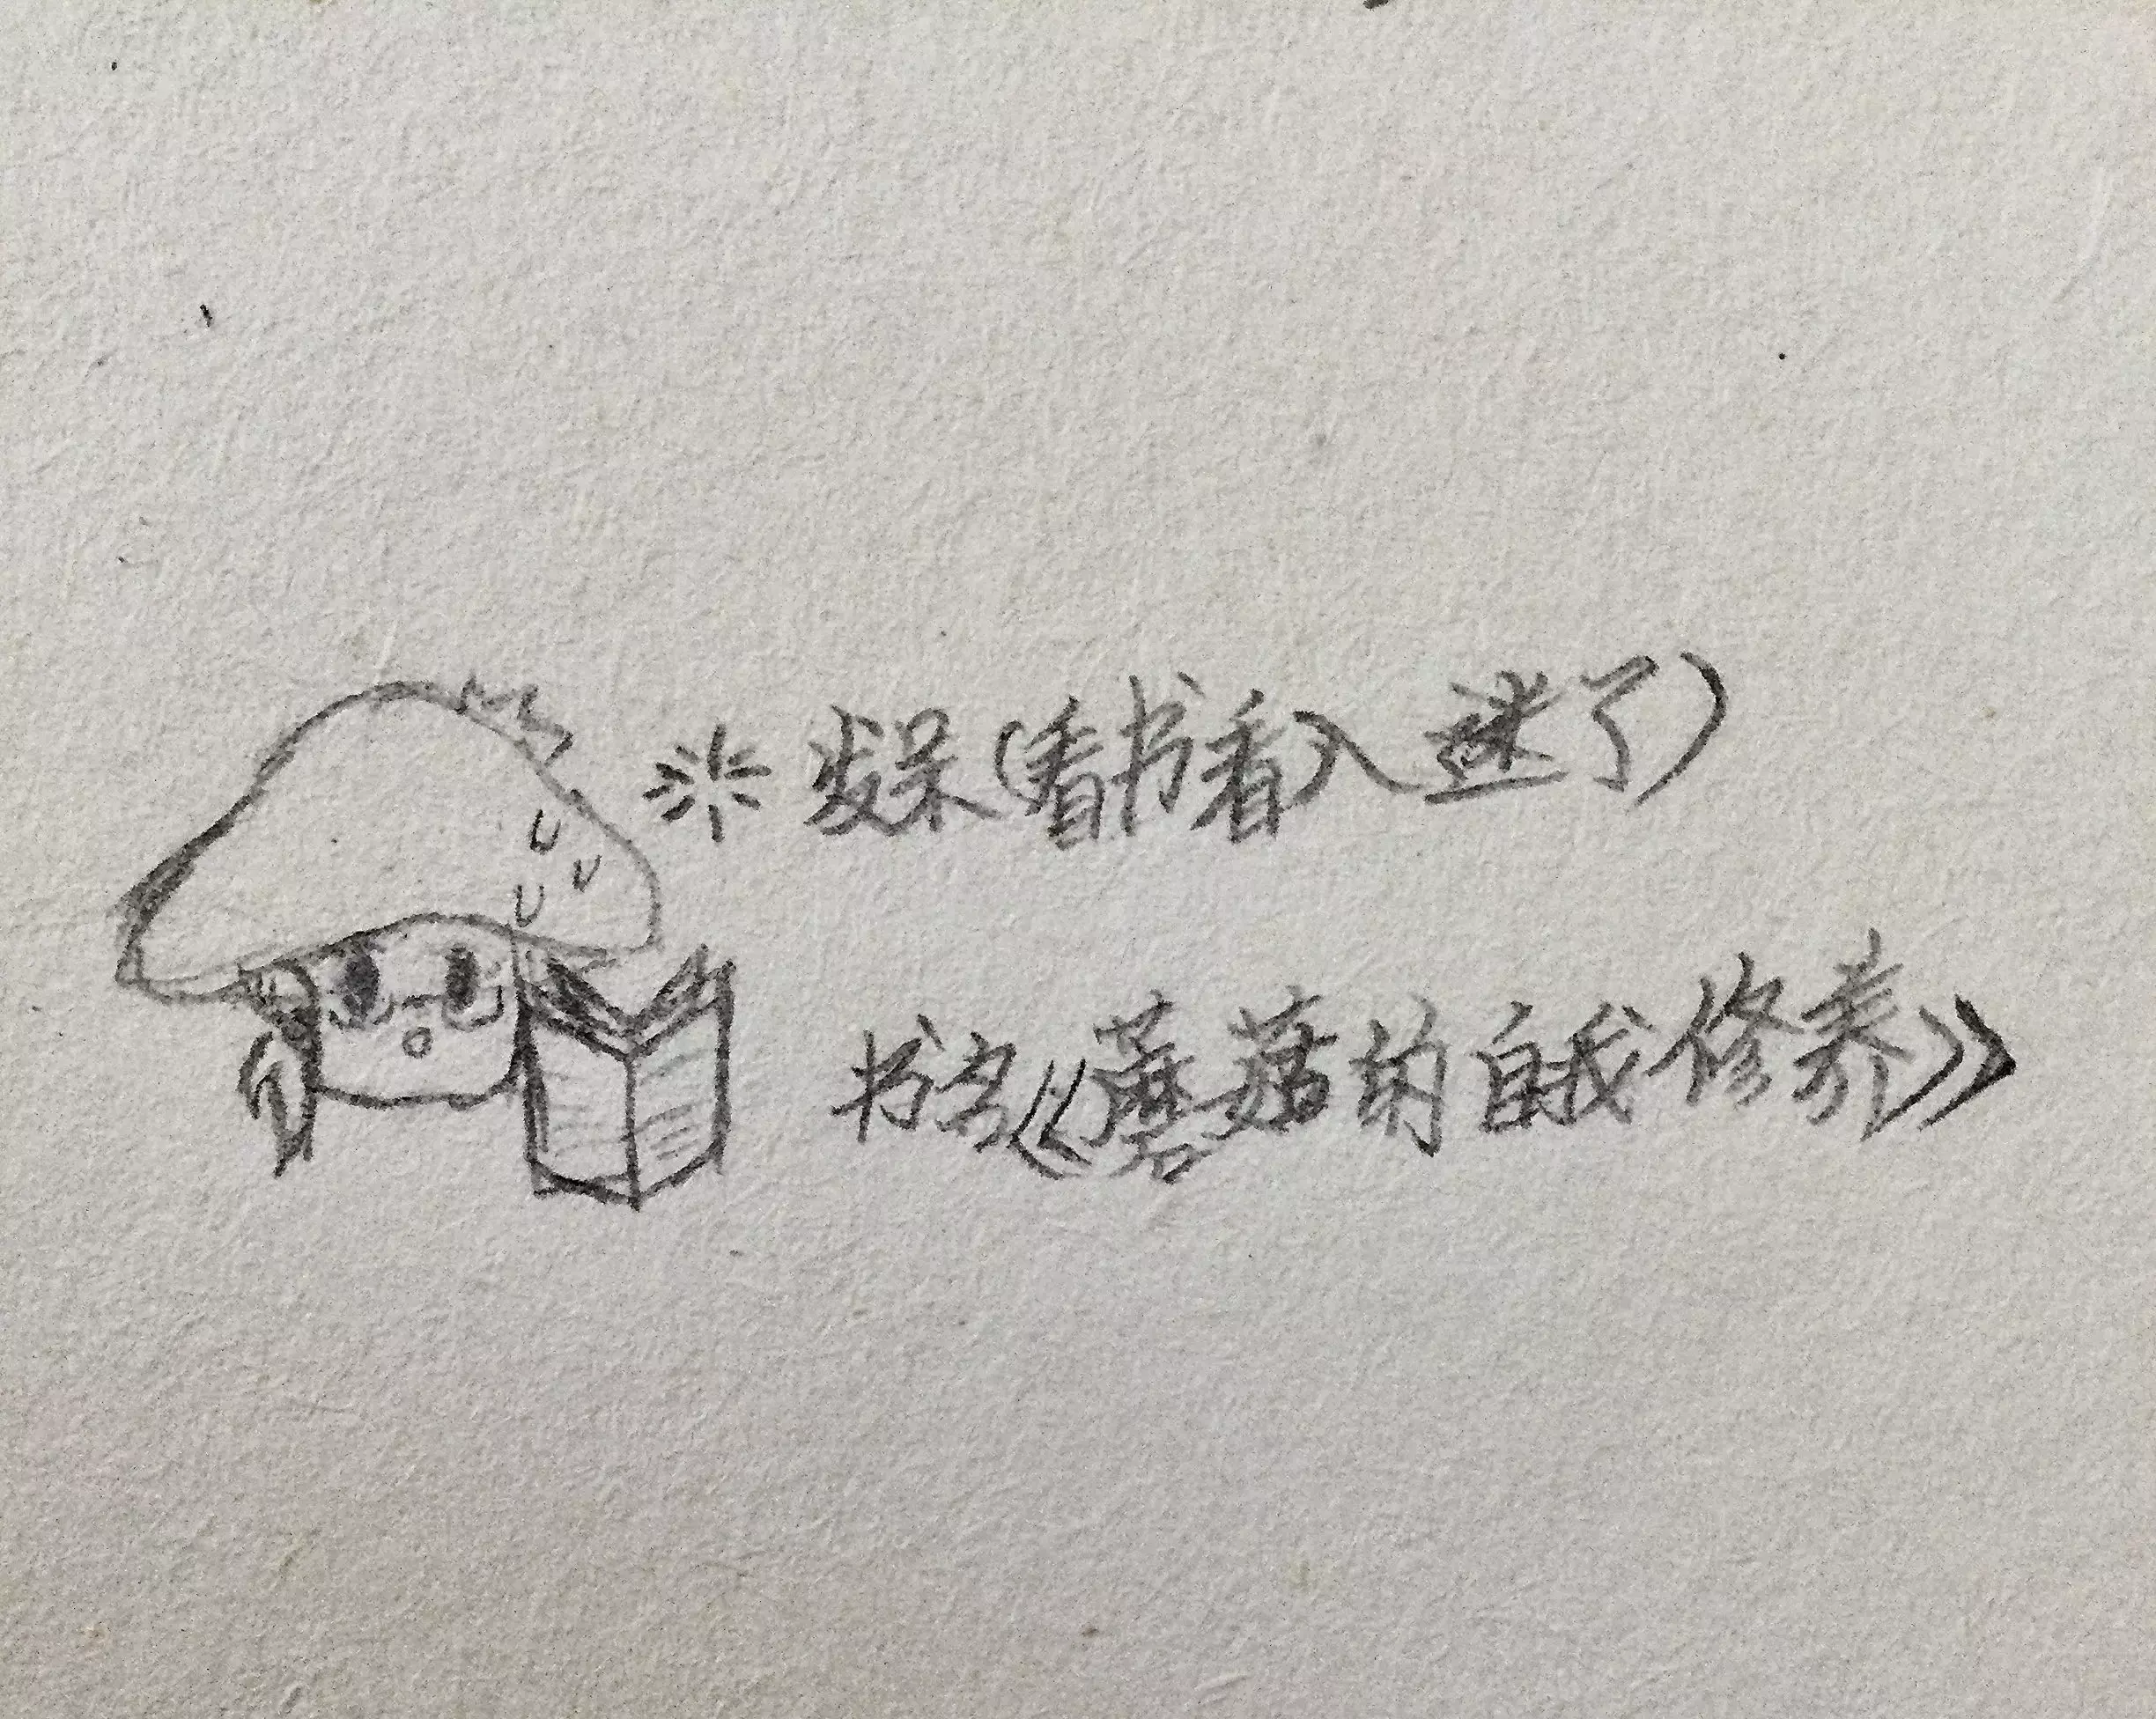 发呆(看书看入迷了)
书名《蘑菇的自我修养》